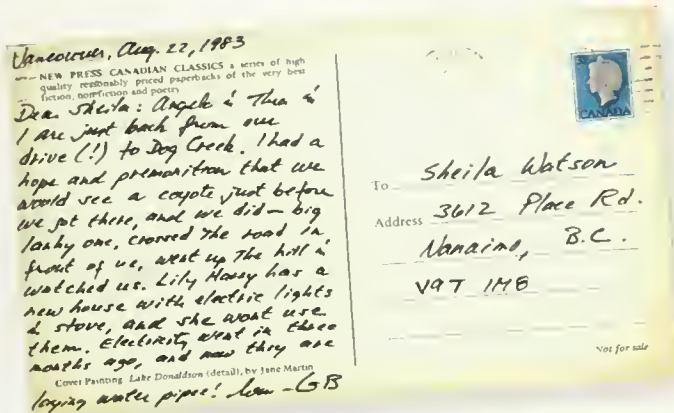 Vancouver, Aug. 22, 1983
NEW PRESS CANADIAN CLASSICS a series of high
quality reasonably priced paperbacks of the very best
fiction, nonfiction and poetry
Dear Sheila: Angela & Thea &
I are just back from our
drive (!) to Dog Creek. I had a
hope and premonition that we
would see a coyote just before
we got there, and we did — big
lanky one, crossed the road in
front of us, went up the hill &
watched us. Lily Harry has a
new house with electric lights
& stove, and she wont use
them. Electricity went in three
months ago, and now they are
Cover Painting Lake Donaldson (detail), by Jane Martin
laying water pipes! — GB
CANADA
To Sheila Watson
Address 3612 Place Rd.
Nanaimo, B.C.
V9T 1M8
Not for sale